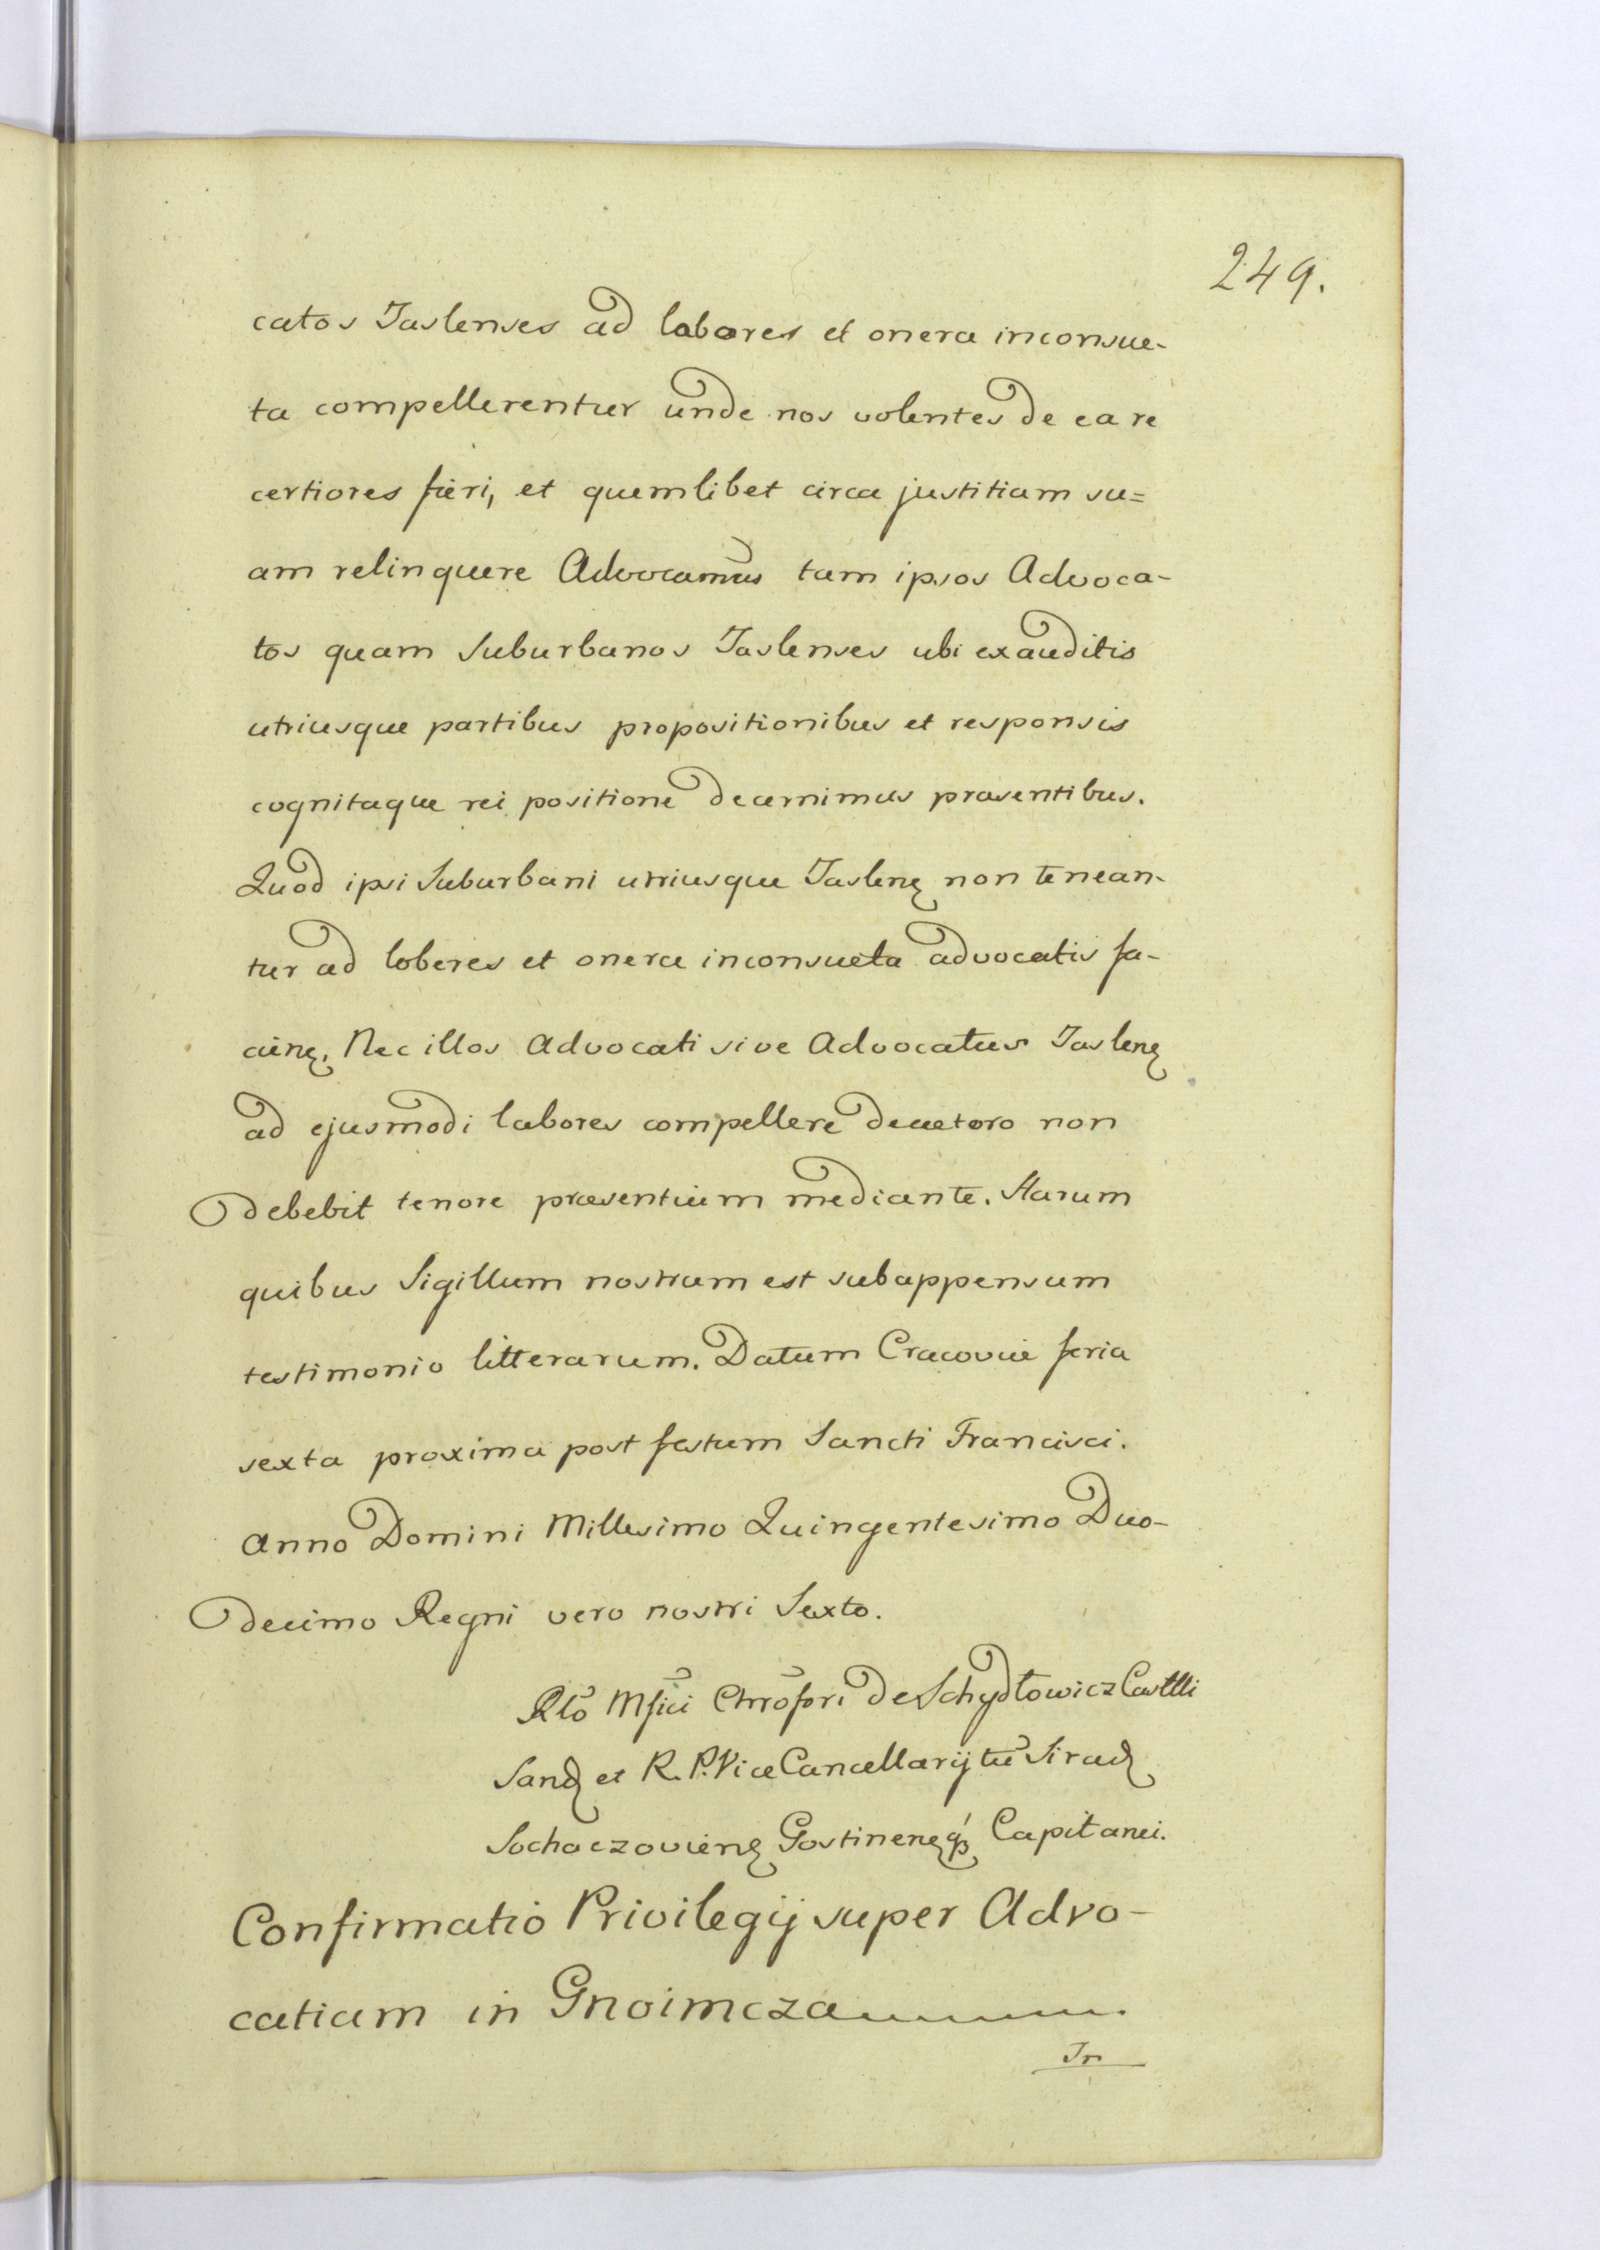 249.
catos Jaslenses ad labores et onera inconsue-
ta compellerentur unde nos volentes de ea re
certiores fieri, et quemlibet circa justitiam su=
am relinquere Advocamus tam ipsos Advoca-
tos quam Suburbanos Jaslenses ubi exauditis
utriusque partibus propositionibus et responsis
cognitaque rei positione decernimus præsentibus.
Quod ipsi Suburbani utriusque Jaslenȩ non tenean-
tur ad loberes et onera inconsueta advocatis fa-
cienȩ. Nec illos Advocati sive Advocatus Jaslenȩ
ad ejusmodi labores compellere decetoro non
debebit tenore præsentium mediante. Harum
quibus Sigillum nostrum est subappensum
testimonio litterarum. Datum Cracoviæ feria
sexta proxima post festum Sancti Francisci.
Anno Domini Millesimo Quingentesimo Duo-
decimo Regni vero nostri Sexto.
Rlõ Mfici Chrõfori de Schydłowicz Castlli
Sand et R. P. Vice Cancellarij Sirad
Sochaczovienȩ Gostinenȩq́ Capitanei.
Confirmatio Privilegij super Advo-
catiam in Gnoimcza
In